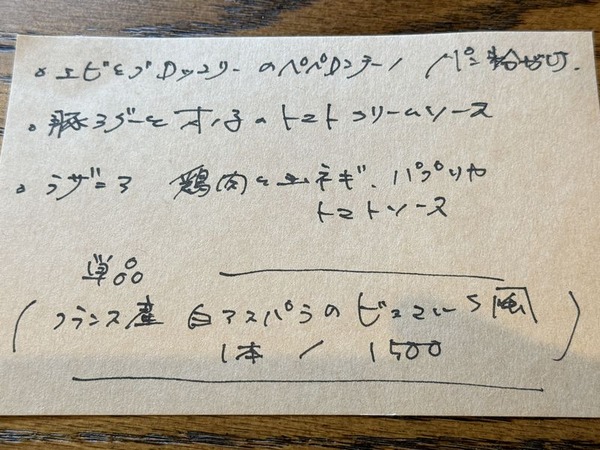 。エビとブロッコリーのペペロンチーノ パン粉がけ.
。豚ヨダーとオノ子のトマトクリームソース
。ラザニア 鶏肉と玉ネギ、パプリカ
トマトソース
単品
(フランス産 白アスパラのビスマルク風)
1本 / 1500